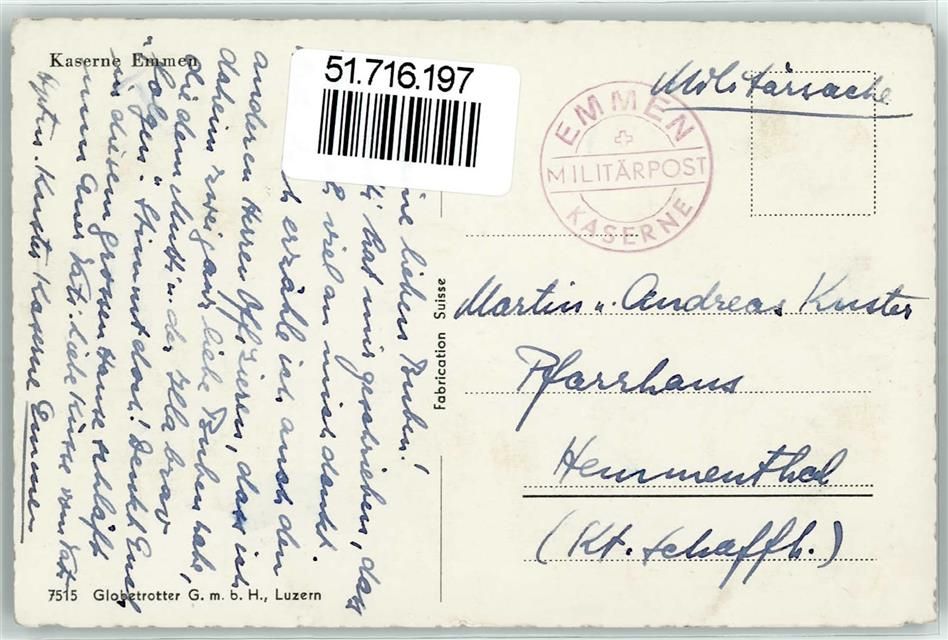 Kaserne Emmen
51.716.197
Militärsache
EMMEN
MILITÄRPOST
KASERNE
lieben Buben!
hat mir geschrieben, dass
viel an mich denkt.
erzähle ich auch den
anderen Herren Offizieren, dass ich
daheim zwei ganz liebe Buben habe,
die dem Mutti u. der Illa brav
"folgen". Stimmt doch! Denkt Euch,
in diesem grossen Hause schläft
nun Euer Vati. Liebe Küsse vom Vati.
Hptm. Kuster Kaserne Emmen
Fabrication Suisse
Martin u. Andreas Kuster
Pfarrhaus
Hemmenthal
(Kt. Schaffh.)
7515 Globetrotter G. m. b. H., Luzern